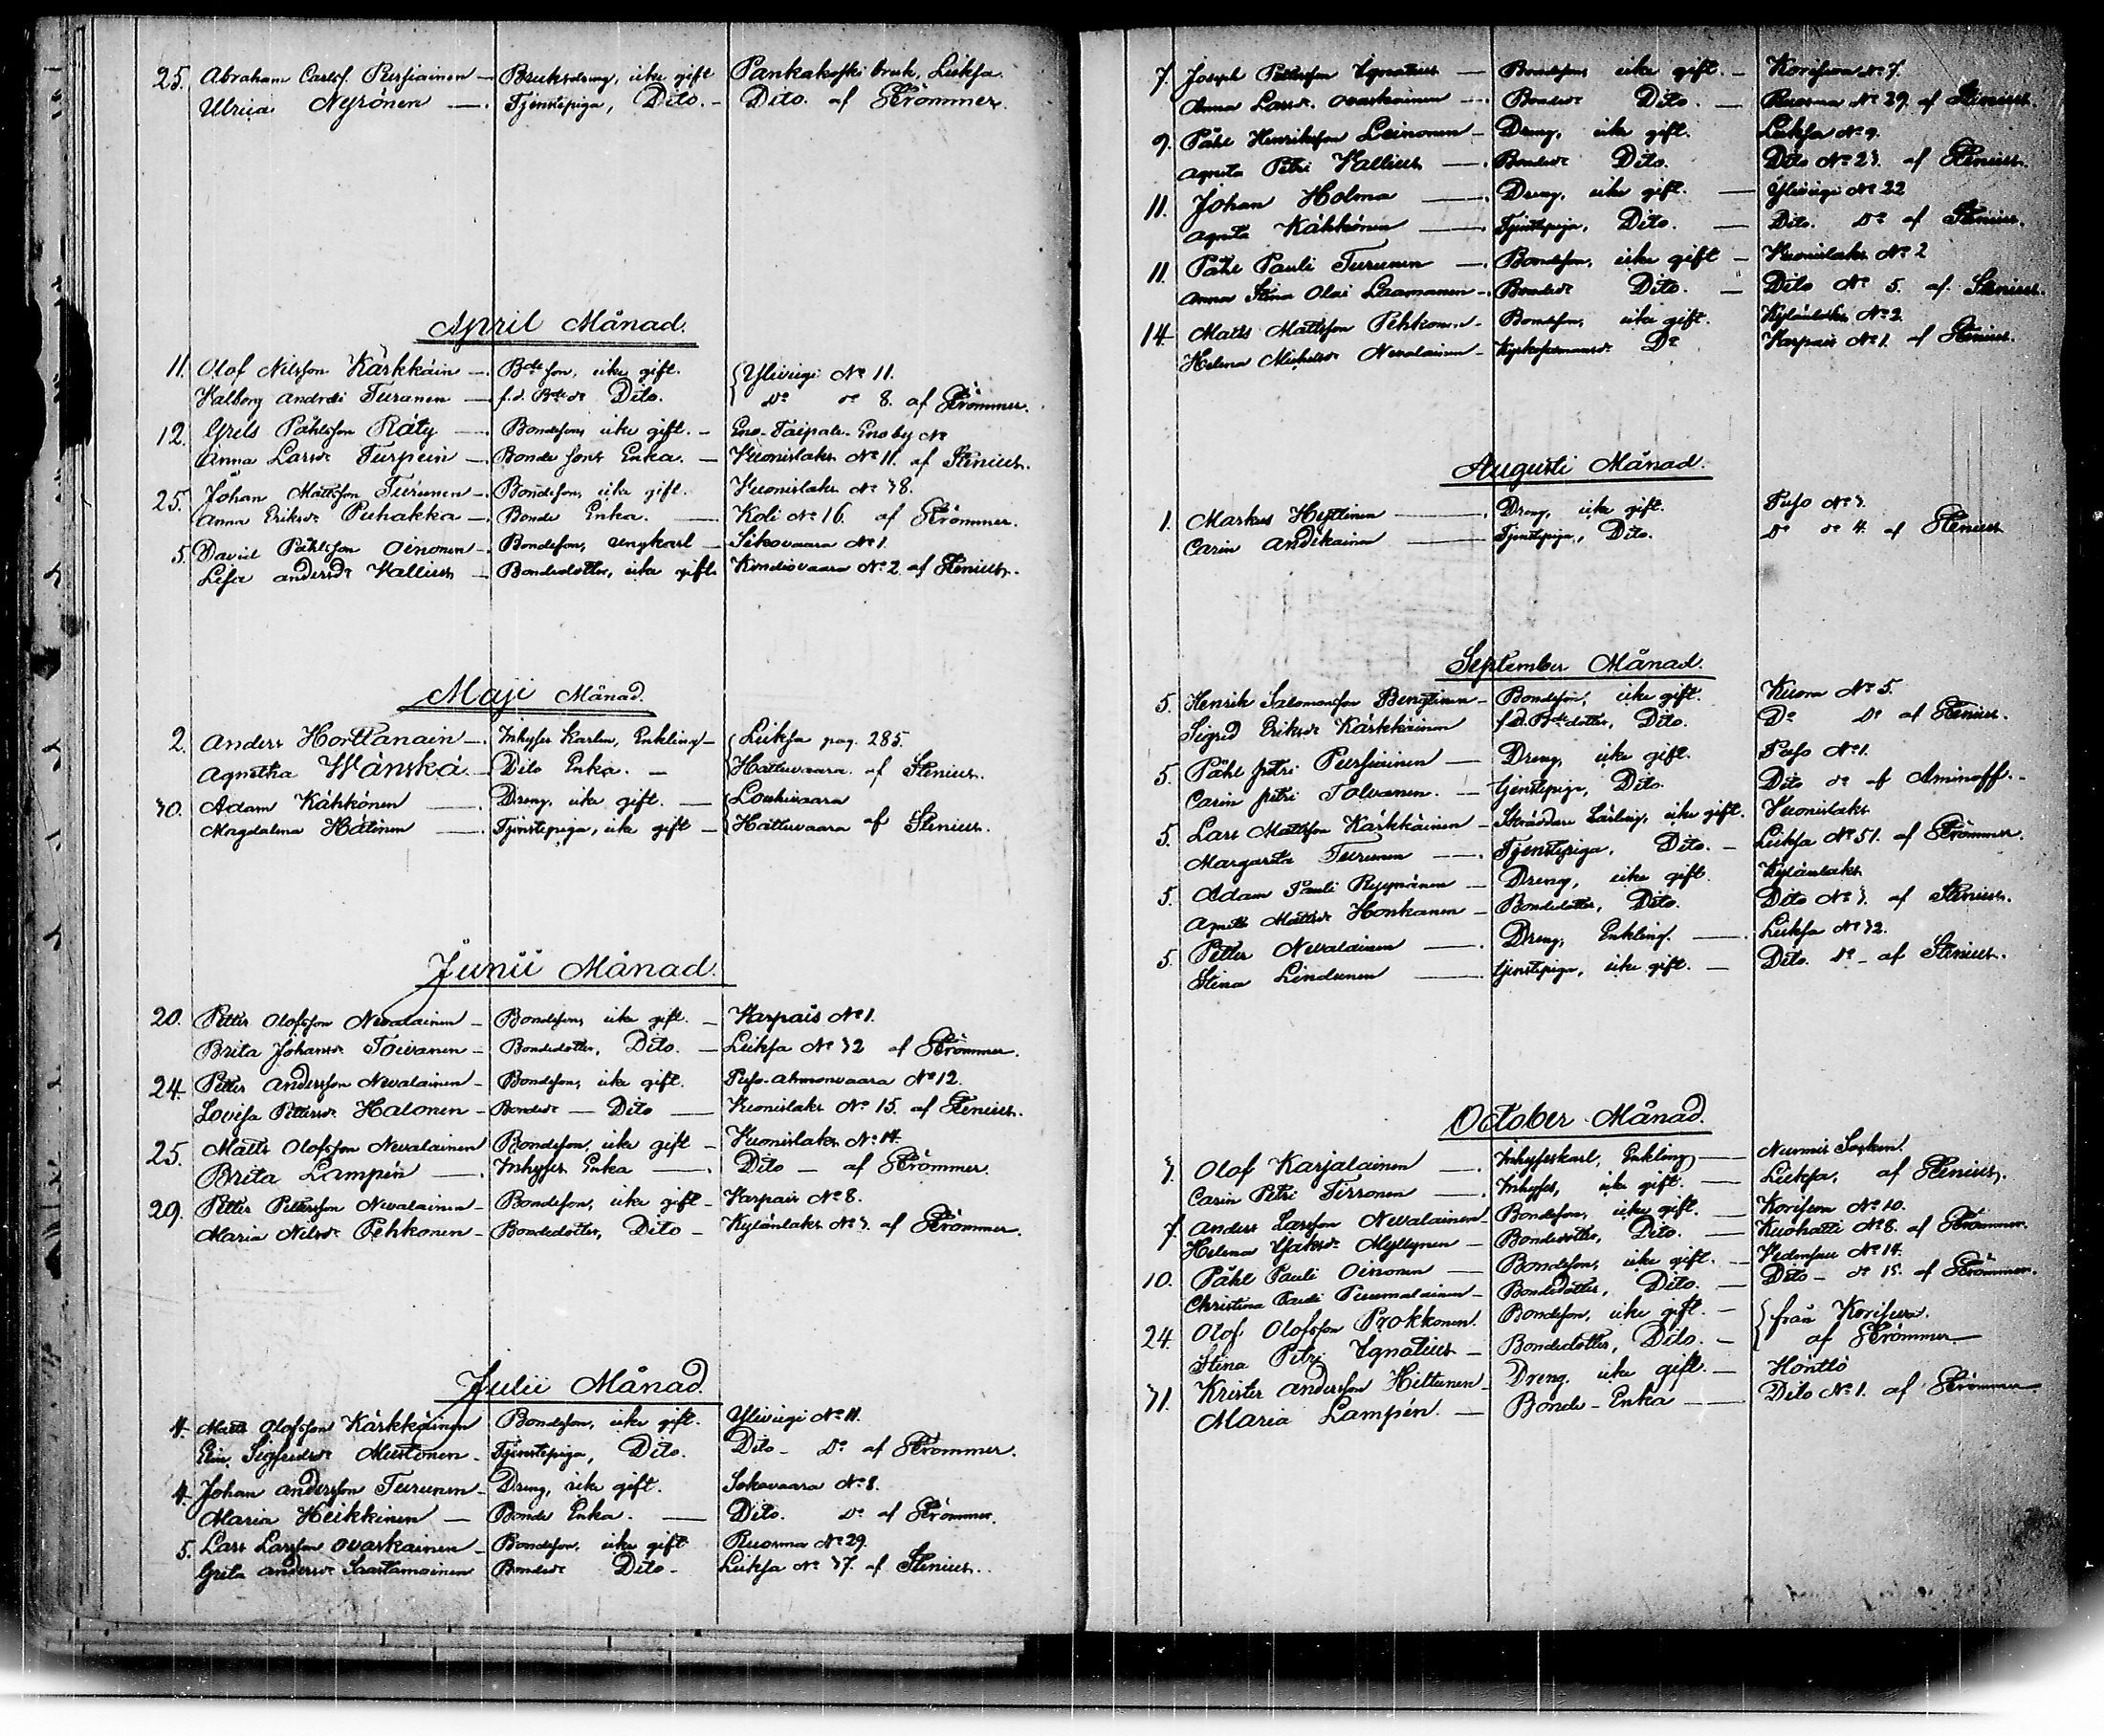 25. Abraham Carlsf. Pursiainen — Bruksdreng, icke gift Pankakoski bruk, Lieksa
Ulrica Nyrönen —. Tjenstepiga, Dito. – Dito. af Strömmer.
April Månad.
11. Olof Nilsson Kärkkäin —. Bde son, icke gift. Ylivirgi No 11.
Walborg Andrei Turanen — f.d. Bde dr Dito. Do do 8. af Strömmer.
12. Grels Påhlsson Räty —. Bondeson, icke gift. – Eno-Taipale-Enoby No
Anna Larsdr Turpein —. Bonde sons Enka. — Wuonislaks No 11. af Stenius.
25. Johan Mattsson Turunen –. Bondeson, icke gift. Wuonislaks No 38.
Anna Eriksdr Puhakka —. Bonde Enka. — Koli No 16. af Strömmer.
5. David Påhlsson Oinonen –. Bondeson, Ungkarl – Sikovaara No 1.
Lisa Andersdr Wallius – Bondedotter, icke gift. Kondiovaara No 2. af Stenius.
Maji Månad.
2. Anders Horttanain —. Inhyses Karlen, Enkling – Lieksa pag. 285.
Agnetha Wänskä Dito Enka. — Hattuvaara. af Stenius.
30. Adam Kähkönen —. Dreng, icke gift. — Louhivaara
Magdalena Hätinen —. Tjenstepiga, icke gift — Hattuvaara af Stenius.
Junii Månad.
20. Petter Olofsson Nevalainen – Bondeson, icke gift. – Karpais No 1.
Brita Johansdr Toivanen – Bondedotter, Dito. — Lieksa No 32 af Strömmer.
24. Petter Andersson Nevalainen – Bondeson, icke gift. Puso-Ahmonvaara No 12.
Lovisa Pettersdr Halonen – Bondedr — Dito — Wuonislaks No 15. af Stenius.
25. Matts Olofsson Nevalainen Bondeson, icke gift – Wuonislaks No 14.
Brita Lampin —. Inhyses Enka —. Dito — af Strömmer.
29. Petter Pettersson Nevalainen – Bondeson, icke gift – Karpais No 8.
Maria Nilsdr Pehkonen – Bondedotter, Dito – Kylänlaks No 3. af Strömmer.
Julii Månad.
4. Matts Olofsson Kärkkäinen Bondeson, icke gift. Ylivirgi No 11.
Elin Sigfridsdr Mustonen – Tjenstepiga, Dito. Dito – Do af Strömmer.
4. Johan Andersson Turunen – Dreng, icke gift. Sokovaara No 8.
Maria Heikkinen — Bonde Enka. — Dito. Do af Strömmer.
5. Lars Larsson Ovaskainen – Bondeson, icke gift Ruosma No 29.
Greta Andersdr Saastamoinen Bondedr Dito – Lieksa No 37. af Stenius.
7. Joseph Pettersson Ignatius — Bondeson, icke gift. – Korisewa No 7.
Anna Larsdr. Ovaskainen —. Bondedr Dito. — Ruosma No 29. af Stenius.
9. Påhl Henriksson Leinonen – Dreng, icke gift. Lieksa No 9.
Agneta Petri Wallius —. Bondedr Dito. Dito No 23. af Stenius.
11. Johan Holma —. Dreng, icke gift. — Ylivirgi No 22
Agneta Kähkönen —. Tjenstepiga, Dito. — Dito. Do af Stenius.
11. Påhl Pauli Turunen —. Bondeson, icke gift – Wuonislaks No 2
Anna Stina Olai Laamanen –. Bondedr Dito. — Dito No 5. af Stenius.
14. Matts Mattsson Pehkonen – Bondeson, icke gift. Kylänlaks No 2.
Helena Michelsdr Nevalainen – Do Karpais No 1. af Stenius.
Augusti Månad.
1. Markus Hyttinen —. Dreng, icke gift. Puso No 3.
Carin Andikainen — Tjenstepiga, Dito. Do do 4. af Stenius
September Månad.
5. Henrik Salomonsson Bengtinen – Bondeson, icke gift. Kuora No 5.
Sigrid Eriksdr Kärkkäinen f.d. Bde dotter, Dito. Do Do af Stenius.
5. Påhl Petri Pursiainen — Dreng, icke gift. Puso No 1.
Carin Petri Tolvanen. — tjenstepiga, Dito. Dito do af Aminoff. –
5. Lars Mattsson Kärkkäinen – Skräddare Lärling, icke gift. Wuonislaks
Margareta Turunen —. Tjenstepiga, Dito. – Lieksa No 51. af Strömmer.
5. Adam Pauli Ryynänen — Dreng, icke gift. Kylänlaks
Agneta Mattsdr Honkanen – Bondedotter, Dito. Dito No 3. af Stenius.
5. Petter Nevalainen —. Dreng, Enkling. —. Lieksa No 32.
Stina Lindunen —. tjenstepiga, icke gift. – Dito. Do – af Stenius.
October Månad.
3. Olof Karjalainen —. Inhyseskarl, Enkling — Nurmis Socken.
Carin Petri Tirronen —. Inhyses, icke gift. — Lieksa, af Stenius.
7. Anders Larsson Nevalainen – Bondeson, icke gift. — Korisewa No 10.
Helena Isaksdr Myllynen — Bondedotter, Dito. — Kuohatti No 8. af Strömmer.
10. Påhl Pauli Oinonen — Bondeson, icke gift. — No 14.
Christina Pauli Puumalainen – Bondedotter, Dito. — Dito – do 15. af Strömmer.
24. Olof Olofsson Prokkonen. Bondeson, icke gift. — från Korisewa.
Stina Petri Ignatius – Bondedotter, Dito. – af Strömmer —
31. Krister Andersson Hiltunen – Dreng, icke gift. – Höntlö
Maria Lampén. — Bonde-Enka — Dito No 1. af Strömmer —